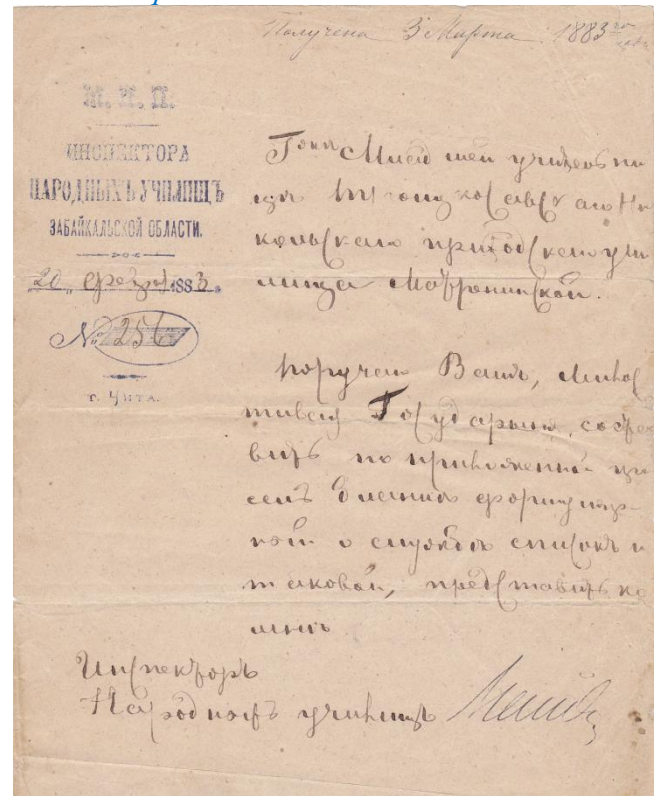 Получена 3 Марта 1883 го года
М. Н. П.
ИНСПЕКТОРА
НАРОДНЫХЪ УЧИЛИЩЪ
ЗАБАЙКАЛЬСКОЙ ОБЛАСТИ.
20 „ февр 1883 „
№ 256
г. Чита.
Младшей учительни
цѣ Троицкосавскаго Ни
кольскаго приходскаго учи
лища
Поручаю Вамъ, Милос
тивая Государыня, соста
вить по приложенной при
семъ формуляр
ной о службѣ списокъ и
таковой, представить ко
мнѣ
Инспекторъ
Народныхъ училищъ